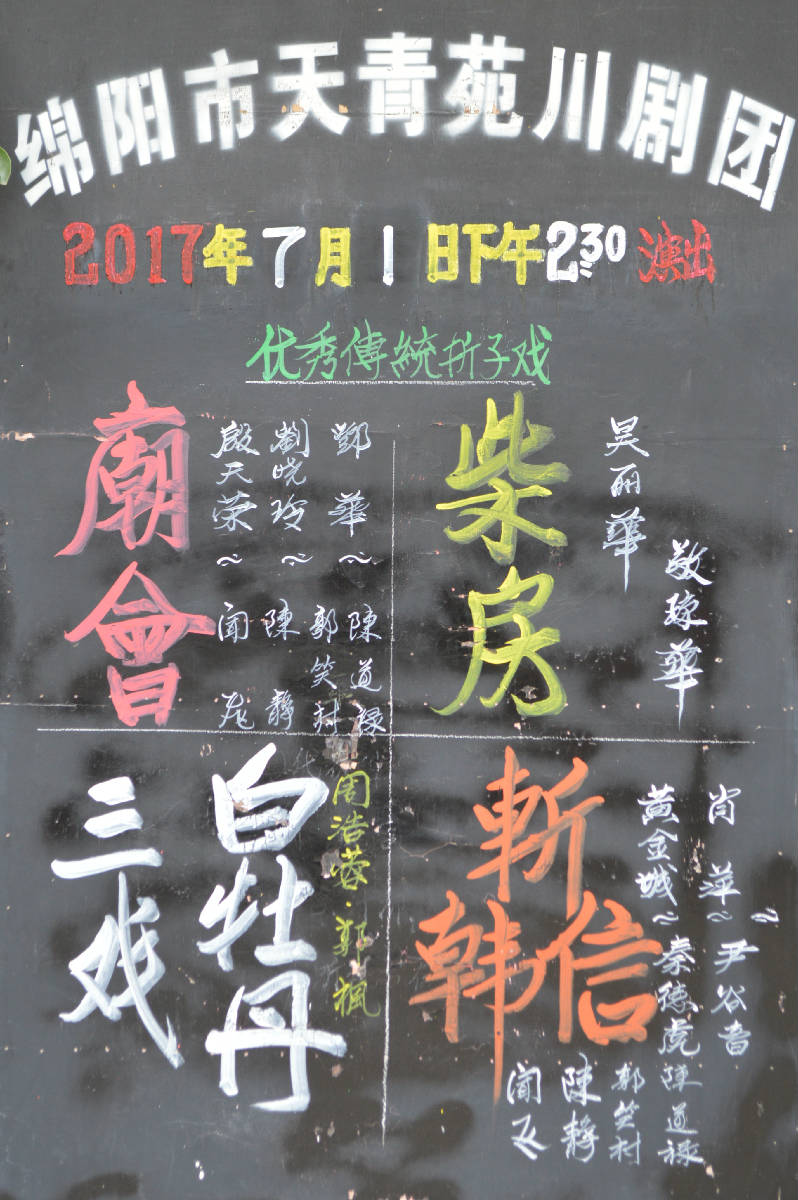 绵阳市天青苑川剧团
2017年7月1日下午2:30演出
优秀傳統折子戏
廟會
鄧華~陳道禄
劉晓玲~郭笑村
殷天荣~陳靜
闻飞
柴房
吴丽華
敬琼華
三戏白牡丹
周浩蓉·郭楓
斬韩信
肖萍~尹谷音
黄金城~秦德虎
陳道禄
郭笑村
陳靜
闻飞